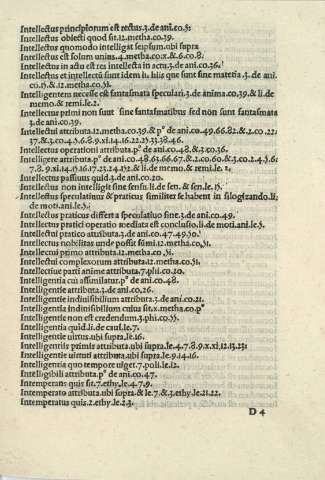 Intellectus principiorum est rectus.3.de ani.co.51
Intellectus obiecti quod sit.12.metha.co.39.
Intellectus quomodo intelligat seipsum.ubi supra
Intellectus est solum unius.4.metha.co.x.&.6.co.8.
Intellectus in actu est rea intellecta in actu.3.de ani.co.36.
Intellectus et intellectũ sunt idem ĩ. his que sunt sine materia .3. de ani. co.15.&.12.metha.co.51.
Intelligentem necesse est fantasmata speculari.3.de anima.co.39.& li.de memo.& remi.le.2.
Intellectus primi non sunt sine fantasmatibus sed non sunt fantasmata 3.de ani.co.39.
Intellectui attributa.12.metha.co.39.& pº de ani.co.49.66.82.&.2.co.22. 37.&.3.co.4.5.6.8.9.xi.14.16.22.25.33.38.46.
Intellectus operationi attributa.pº de ani.co.48.&.3.co.36.
Intelligere attributa.pº de ani.co.48.63.66.67.&.2.co.60.&.3.co.2.4.5.6. 7.8.9.xi.14.15.16.17.23.24.152.& li.de memo.& remi.le.2.
Intellectus passiuus quid.3.de ani.co.20.
Intellectus non intelligit sine sensu.li.de sen.& sen.le.15.
Intellectus speculatiuus & praticus similiter se habent in silogizando.li; de moti.ani.le.5.
Intellectus praticus differt a speculatiuo fine.3.de ani.co.49.
Intellectus pratici operatio mediata est conclusio.li.de moti.ani.le.5.
Intellectui pratico attributa.3.de ani.co.47.49.50.
Intellectus nobilitas unde possit sumi.12.metha.co.51.
Intellectui primo attributa.12.metha.co.51.
Intellectui complexorum attributa.12.metha.co.51.
Intellectiue parti anime attributa.7.phi.co.20.
Intelligentia cui assimilatur.pº de ani.co.48.
Intelligentie attributa.3.de ani.co.26.
Intelligentie indiuisibilium attributa.3.de ani.co.21.
Intelligentia indiuisibilium cuius sit.x.metha.co.pº
Intelligentie non est credendum.3.phi.co.55.
Intelligentia quid.li.de cau.le.7.
Intelligentie uirtus.ubi supra.le.16.
Intelligentiis primis attributa.ubi supra.le.4.7.8.9.x.xi.12.13.23.
Intelligentie uirtuti attributa.ubi supra.le.9.14.16.
Intelligentia quo tempore uiget.7.poli.le.12.
Intelligibili attributa.pº de ani.co.47.
Intemperans quis sit.7.ethy.le.4.7.9.
Intemperato attributa.ubi supra & le.7.&.3.ethy.le.21.22.
Intemperatus quis.2.ethy.le.2.3.
D 4